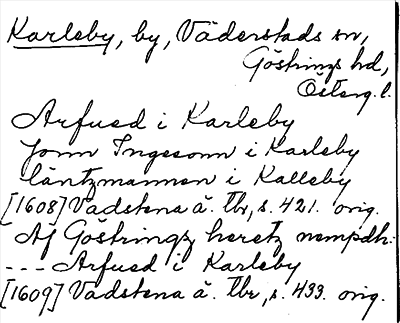 Karleby, by, Väderstads sn,
Göstrings hd,
Österg. l.
Arfued i Karleby
Jonn Ingesonn i Karleby
läntzmannen i Kalleby
[1608] Vadstena ä. tbr, s. 421. orig.
Af Göstringz heretz nempdh:
--- Arfued i Karleby
[1609] Vadstena ä. tbr, s. 433. orig.